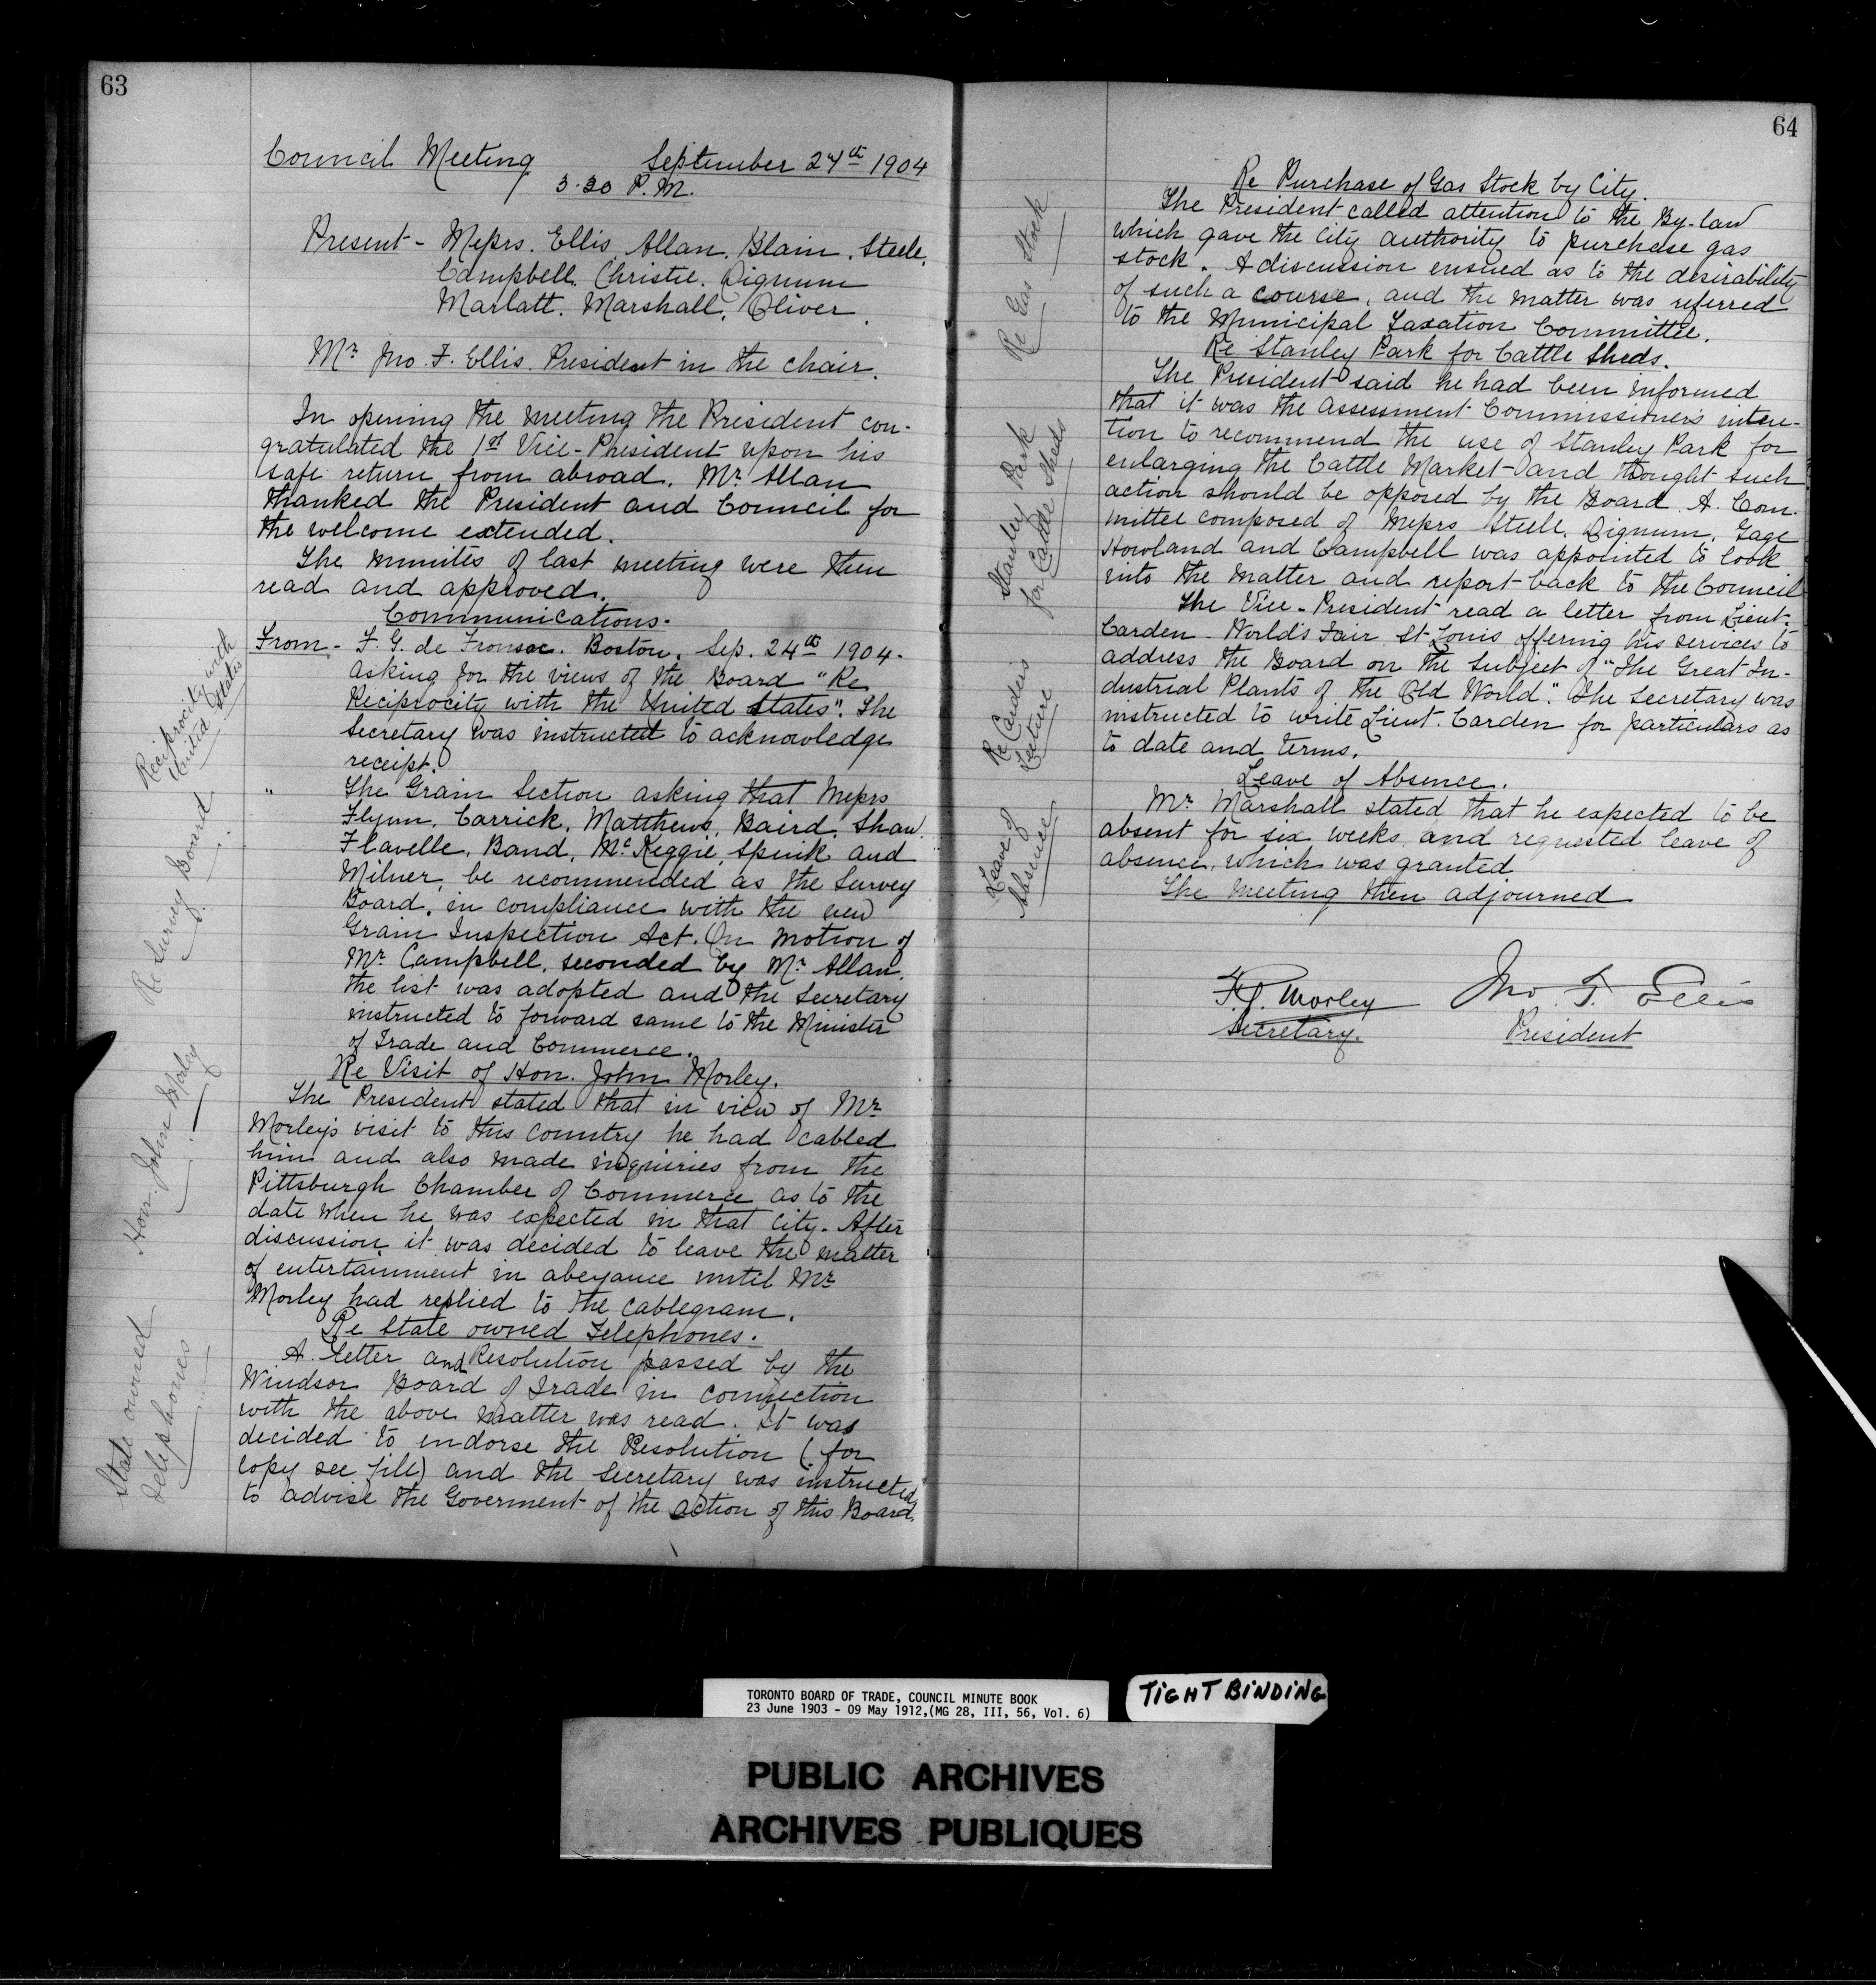 63
Council Meeting September 27th 1904
3.30 P.M.
Present - Messrs. Ellis, Allan, Blain, Steele,
Campbell, Christie, Dignum
Marlatt, Marshall, Oliver.
Mr Jno. F. Ellis. President in the chair.
In opening the meeting the President con-
gratulated the 1st Vice-President upon his
safe return from abroad. Mr. Allan
thanked the President and Council for
the welcome extended.
The minutes of last meeting were then
read and approved.
Communications.
From - F. G. de Fronsac. Boston. Sep. 24th 1904.
asking for the views of the Board "Re
Reciprocity with the United States". The
Secretary was instructed to acknowledge
receipt.
Reciprocity with
United States
" The Grain Section asking that Messrs
Flynn, Carrick, Matthews, Baird, Shaw.
Flavelle, Band, McKeggie, Spink and
Milner, be recommended as the Survey
Board, in compliance with the new
Grain Inspection Act. On motion of
Mr Campbell, seconded by Mr Allan,
the list was adopted and the Secretary
instructed to forward same to the Minister
of Trade and Commerce.
Re Survey Board
Re Visit of Hon. John Morley.
The President stated that in view of Mr
Morley's visit to this country he had cabled
him and also made inquiries from the
Pittsburgh Chamber of Commerce as to the
date when he was expected in that city. After
discussion it was decided to leave the matter
of entertainment in abeyance until Mr
Morley had replied to the cablegram.
Hon. John Morley
Re State owned Telephones.
A letter and Resolution passed by the
Windsor Board of Trade in connection
with the above matter was read. It was
decided to endorse the Resolution (for
copy see file) and the Secretary was instructed
to advise the Goverment of the action of this Board.
State owned
Telephones
64
Re Purchase of Gas Stock by City.
The President called attention to the By-law
which gave the City authority to purchase gas
stock. A discussion ensued as to the desirability
of such a course, and the matter was referred
to the Municipal Taxation Committee.
Re Gas Stock
Re Stanley Park for Cattle Sheds.
The President said he had been informed
that it was the Assessment Commissioner's inten-
tion to recommend the use of Stanley Park for
enlarging the Cattle Market and thought such
action should be opposed by the Board. A Com-
mittee composed of Messrs Steele, Dignum, Gage
Howland and Campbell was appointed to look
into the matter and report back to the Council
Stanley Park
for Cattle Sheds
The Vice-President read a letter from Lieut.
Carden - World's Fair St Louis offering his services to
address the Board on the subject of "The Great In-
dustrial Plants of the Old World." The Secretary was
instructed to write Lieut. Carden for particulars as
to date and terms.
Re Carden's
Lecture
Leave of Absence.
Mr Marshall stated that he expected to be
absent for six weeks and requested leave of
absence, which was granted
The meeting then adjourned
Leave of
Absence
F.G. Morley Jno. F. Ellis
Secretary. President
TORONTO BOARD OF TRADE, COUNCIL MINUTE BOOK
23 June 1903 - 09 May 1912,(MG 28, III, 56, Vol. 6)
TIGHT BINDING
PUBLIC ARCHIVES
ARCHIVES PUBLIQUES